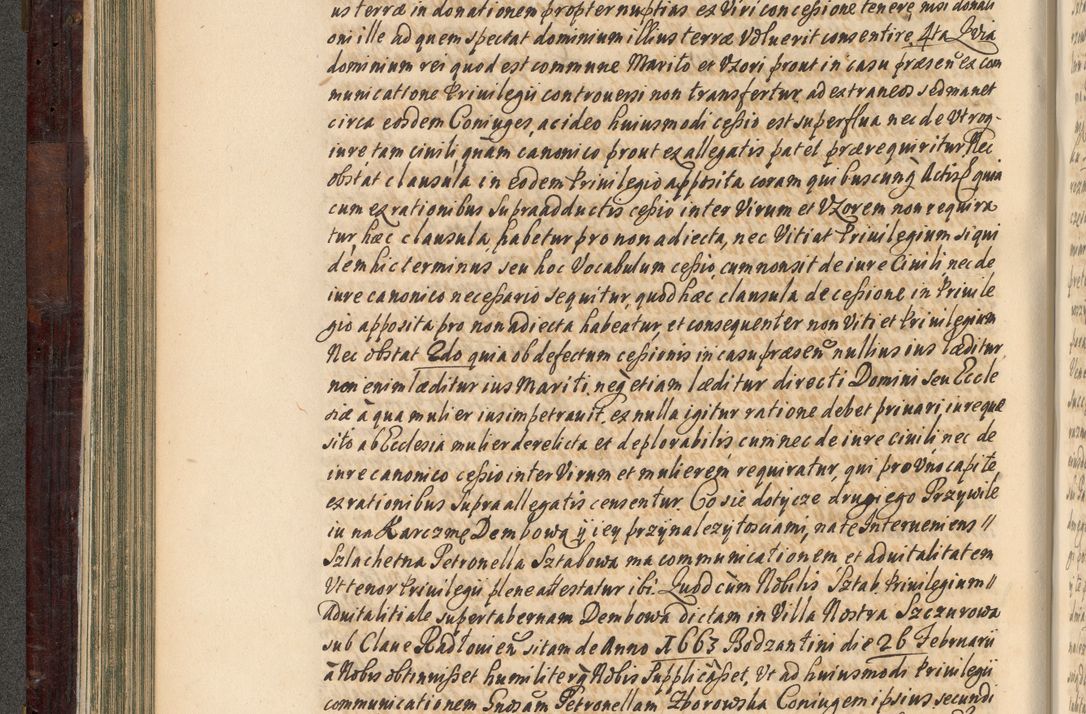 us terræ in donationem propter nuptias ex Viri concessione tenere nisi donati
oni ille ad quem spectat dominium illius terræ voluerit consentire 4ta Quia
dominium rei quod est commune Marito et Vxori prout in casu præsen ex com
municatione Privilegii controuersi non transfertur ad extraneos sed manet
circa eosdem Coniuges, ac ideo huiusmodi cessio est superflua nec de Vtroq
iure tam ciuili quàm canonico prout ex allegatis patet prærequiritur Nec
obstat clausula in eodem Priuilegio apposita coram quibuscunq Actis quia
cum ex rationibus supra adductis cessio inter Virum et Vxorem non requira
tur hæc clausula, habetur pro non adiecta, nec Vitiat Priuilegium siqui
dem hic terminus seu hoc Vocabulum cessio, cum non sit de iure Ciuili nec de
iure canonico necessario sequitur, quod hæc clausula de cessione in Priuile
gio apposita pro non adiecta habeatur, et consequenter non Vitiet Priuilegium
Nec obstat 2do quia ob defectum cessionis in casu præsen nullius ius læditur,
non enim læditur ius Mariti, neq etiam læditur directi Domini seu Eccle
siæ à qua mulier ius impetrauit, ex nulla igitur ratione debet priuari iure quæ
sito ab Ecclesia mulier derelicta et deplorabilis cum nec de iure ciuili nec de
iure canonico cessio inter Virum et mulierem requiratur, qui pro Vno capite,
ex rationibus supra allegatis censentur. Co sie dotycze drugiego Przywile
iu na Karczmę Dembowa y iey przynalezytosciami, na te Interueniens //
Szlachetna Petronella Sztabowa ma communicationem et aduitalitatem
Vt tenor Priuilegii plene attestatur ibi. Quod cùm Nobilis Sztab Priuilegium //
Aduitalitiale super tabernam Dembowa dictam in Villa Nostra Szczurowa
sub Claue Radłouien sitam de Anno 1663 Bodzantini die 26 Februarii
à Nobis obtinuisset humiliterq Nobis supplicasset, Vt ad huiusmodi Priuilegii
communicationem Petronellam Zborowska Coniugem ipsius secundi